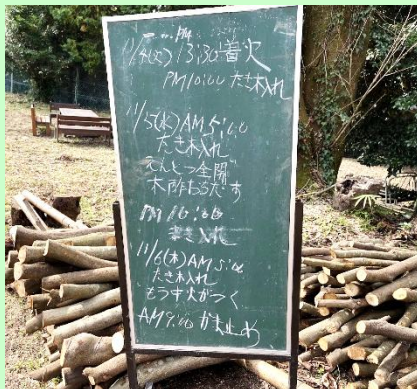 11/4(火) 13:30着火
PM10:00 たき木入れ
11/5(水) AM 5:00
たき木入れ
えんとつ全開
木酢たるだす
PM 10:00
11/6(木) AM 5:00
たき木入れ
もう中火がつく
AM 9:00 かま止め